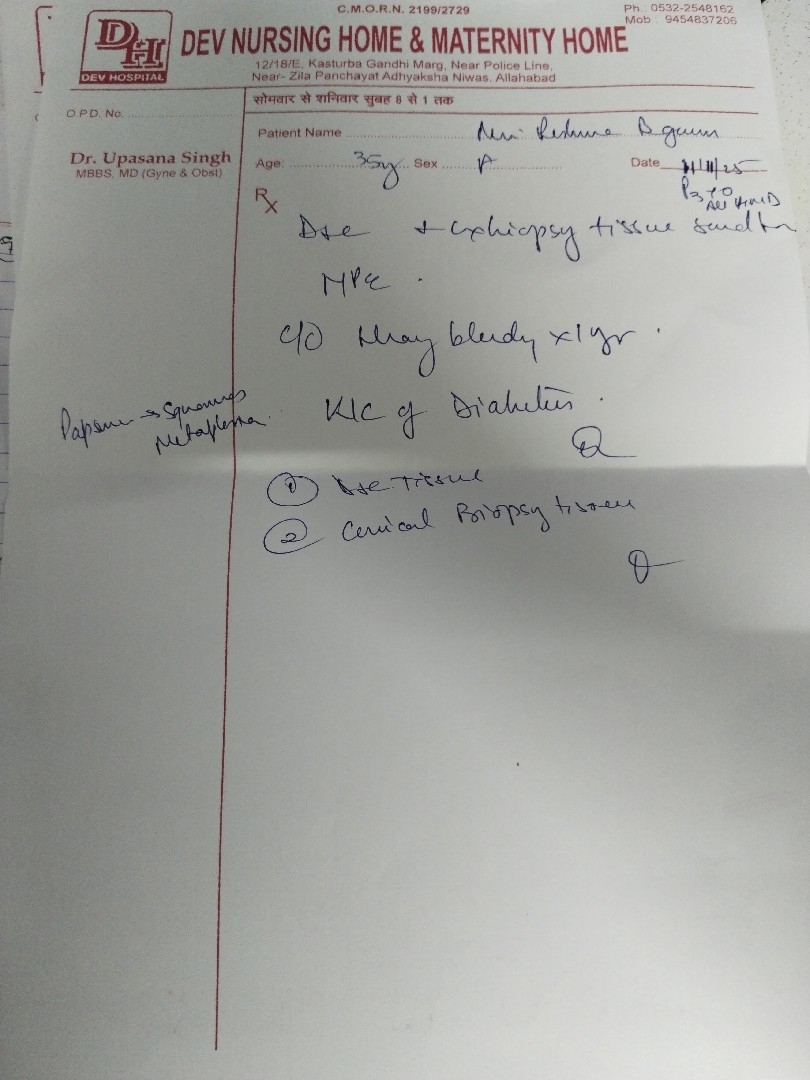 C.M.O.R.N. 2199/2729
Ph.: 0532-2548162
Mob.: 9454837206
DHI
DEV HOSPITAL
DEV NURSING HOME & MATERNITY HOME
12/18/E, Kasturba Gandhi Marg, Near Police Line,
Near- Zila Panchayat Adhyaksha Niwas, Allahabad
O.P.D. No.
सोमवार से शनिवार सुबह 8 से 1 तक
Patient Name Begum
Dr. Upasana Singh
MBBS, MD (Gyne & Obst)
Age: 35y Sex Date 11/11/25
Rx
P3+0
D&C + Cx biopsy tissue send for
HPE.
C/O bleedy x 1 yr.
K/C of Diabetes.
Papsmear → Squamous
Metaplasia
① D&C Tissue
② Cervical Biopsy tissue